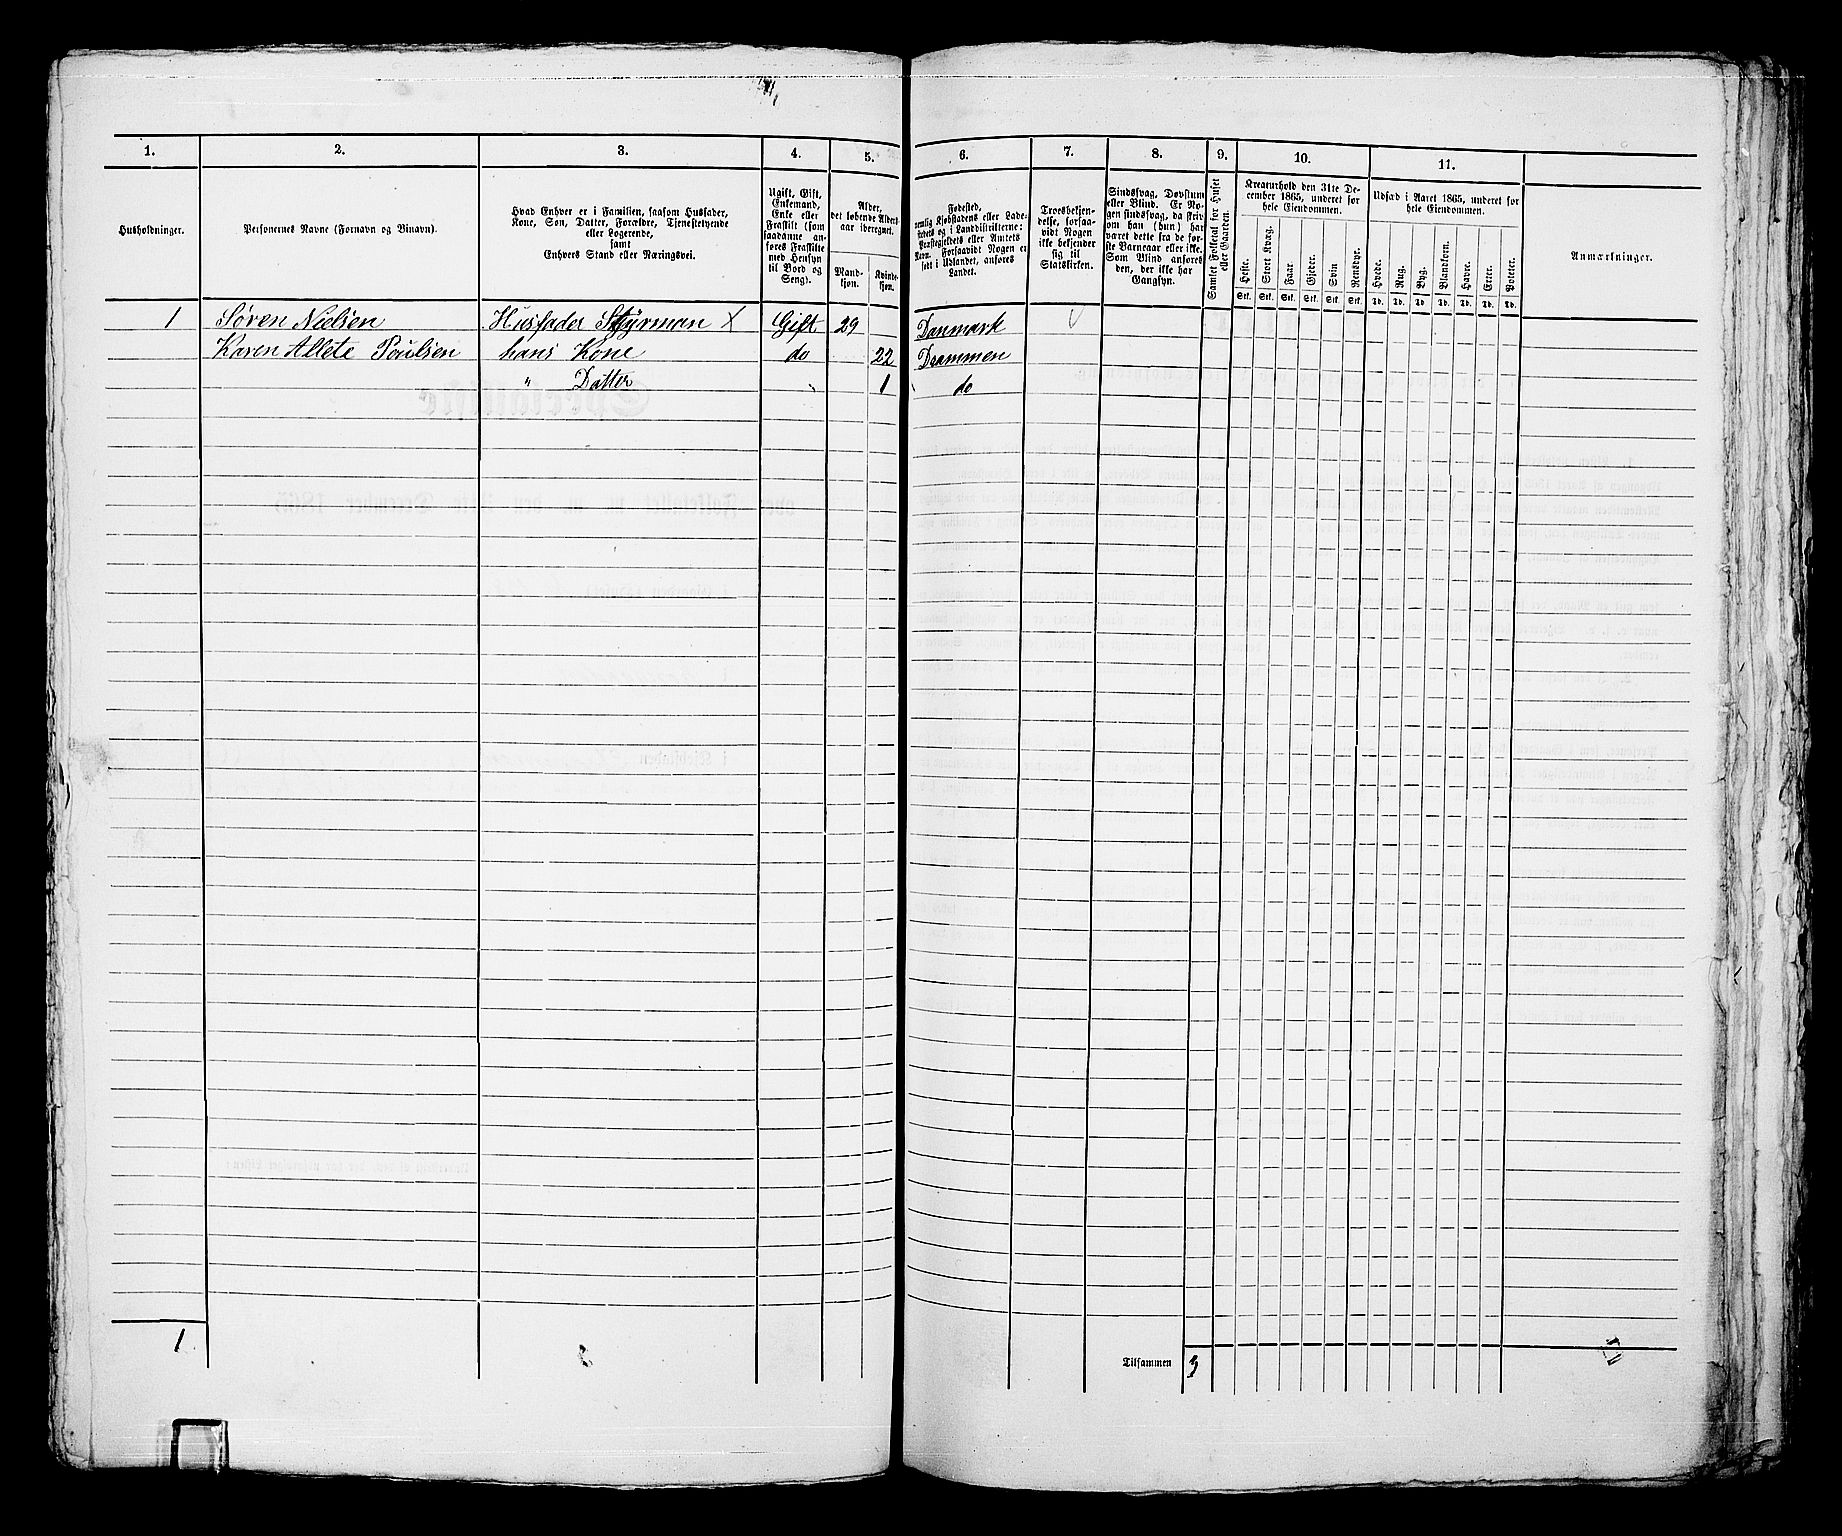 1. 2. 3. 4. 5. 6. 7. 8. 9. 10. 11.
Husholdninger.
Personernes Navne (Fornavn og Binavn).
Hvad Enhver er i Familien, saasom Husfader,
Kone, Søn, Datter, Forældre, Tjenestetyende
eller Logerende,
samt
Enhvers Stand eller Næringsvei.
Ugift, Gift,
Enkemand,
Enke eller
Fraskilt (som
saadanne an-
føres Fraskilte
med Hensyn
til Bord og
Seng).
Alder,
det løbende Alders-
aar iberegnet.
Mand-
kjøn.
Kvinde-
kjøn.
Fødested,
nemlig Kjøbstadens eller Lade-
stedets og i Landdistrikterne:
Præstegjeldets eller Amtets
Navn. Forsaavidt Nogen er
født i Udlandet, anføres
Landet.
Troesbekjen-
delse, forsaa-
vidt Nogen
ikke bekjender
sig til
Statskirken.
Sindssvag, Døvstum
eller Blind. Er No-
gen sindssvag, da skriv
om han (hun) har
været dette fra de før-
ste Barneaar eller ikke.
Som Blind anføres
den, der ikke har
Gangsyn.
Samlet Folketal for Huset
eller Gaarden.
Kreaturhold den 31te De-
cember 1865, underet før
hele Eiendommen.
Heste. Stort Kvæg. Faar. Gjeder. Svin Rensdyr.
Stk. Stk. Stk. Stk. Stk. Stk.
Udsæd i Aaret 1865, underet før
hele Eiendommen.
Hvede. Rug. Byg. Blandkorn. Havre. Erter. Poteter.
Td. Td. Td. Td. Td. Td. Td.
Anmærkninger.
1 Søren Nielsen Husfader Styrman X Gift 29 Danmark
Karen Allete Poulsen hans Kone do 22 Drammen
" Datter 1 do
1
Tilsammen 3